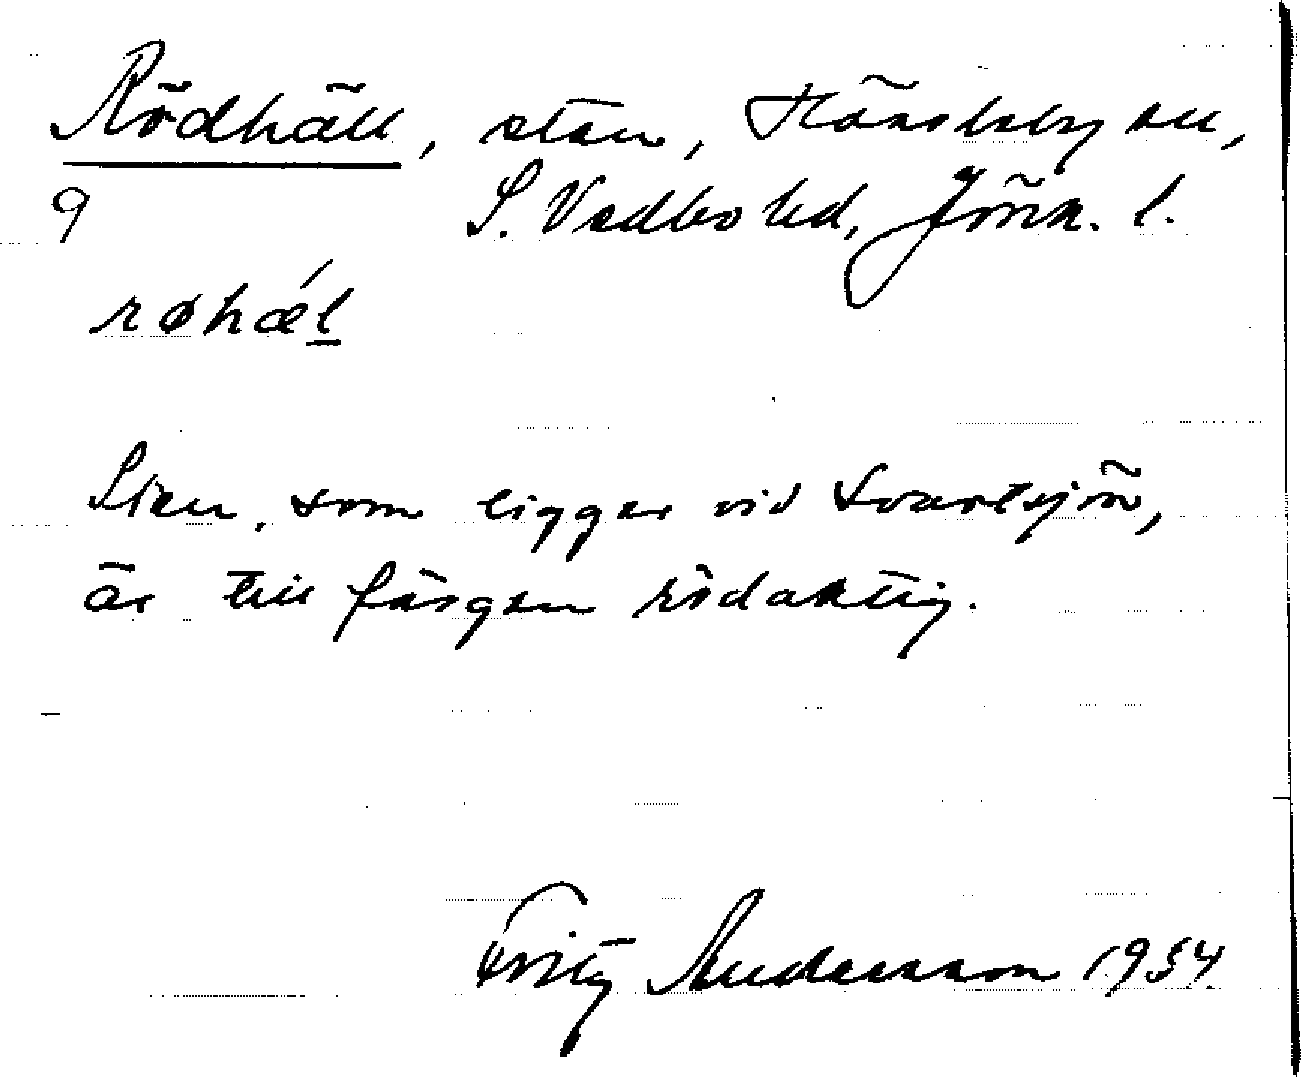 Rödhäll, sten, Hässleby sn,
9 S. Vedbo hd, Jönk. l.
røhǽl
Sten, som ligger vid Svartsjön,
är till färgen rödaktig.
Fritz Andersson 1934.